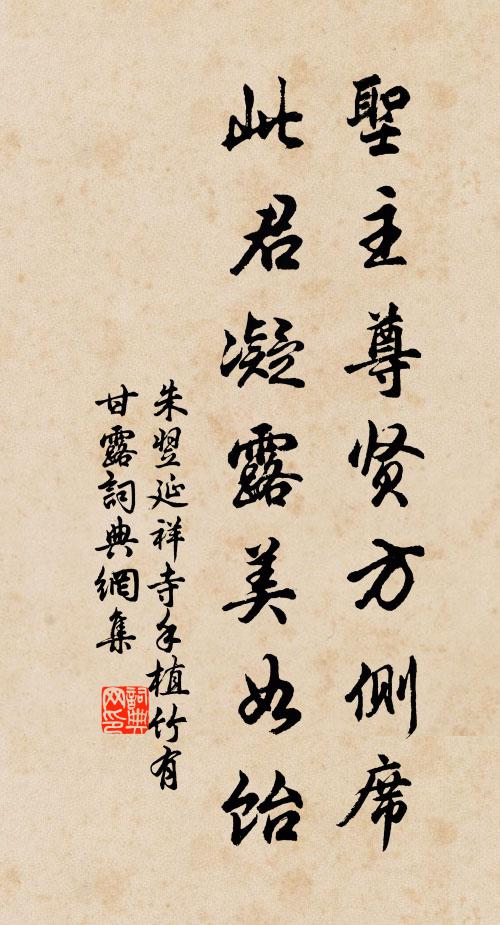 聖主尊贤方側席
此君凝露美如飴
朱翌延祥寺手植竹有
甘露詞典網集
詞典网印